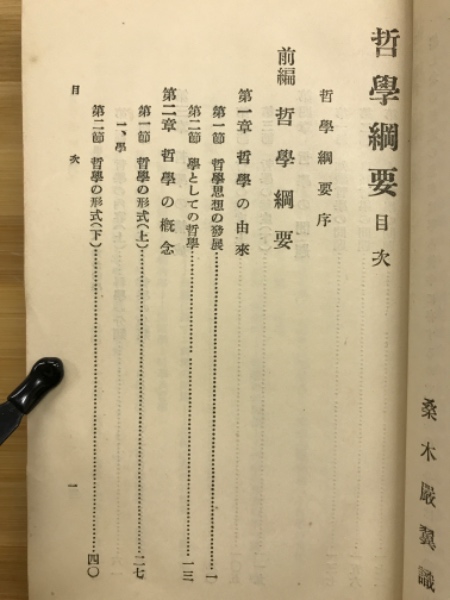 桑木嚴翼識
哲學綱要目次
哲學綱要序
前編 哲學綱要
第一章 哲學の由來
第一節 哲學思想の發展………一
第二節 學としての哲學………一三
第二章 哲學の概念
第一節 哲學の形式(上)………二七
一、學
第二節 哲學の形式(下)………四〇
目次 一